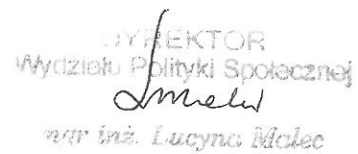 DYREKTOR
Wydziału Polityki Społecznej
mgr inż. Lucyna Malec